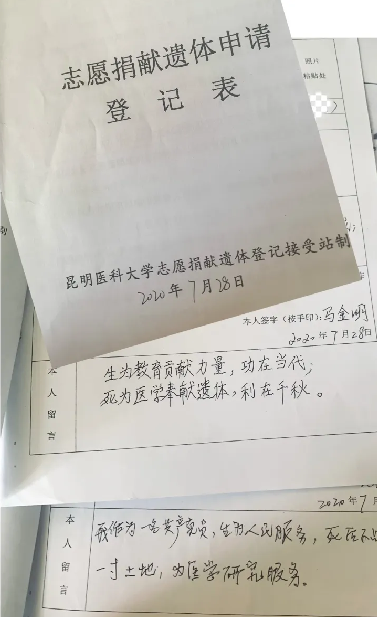 志愿捐献遗体申请
登记表
昆明医科大学志愿捐献遗体登记接受站制
2020年7月28日
照片
粘贴处
本人签字（按手印）：马金明
2020年7月28日
本人留言
生为教育贡献力量，功在当代；
死为医学奉献遗体，利在千秋。
2020年7
本人留言
我作为一名共产党员，生为人民服务，死后不占
一寸土地，为医学研究服务。